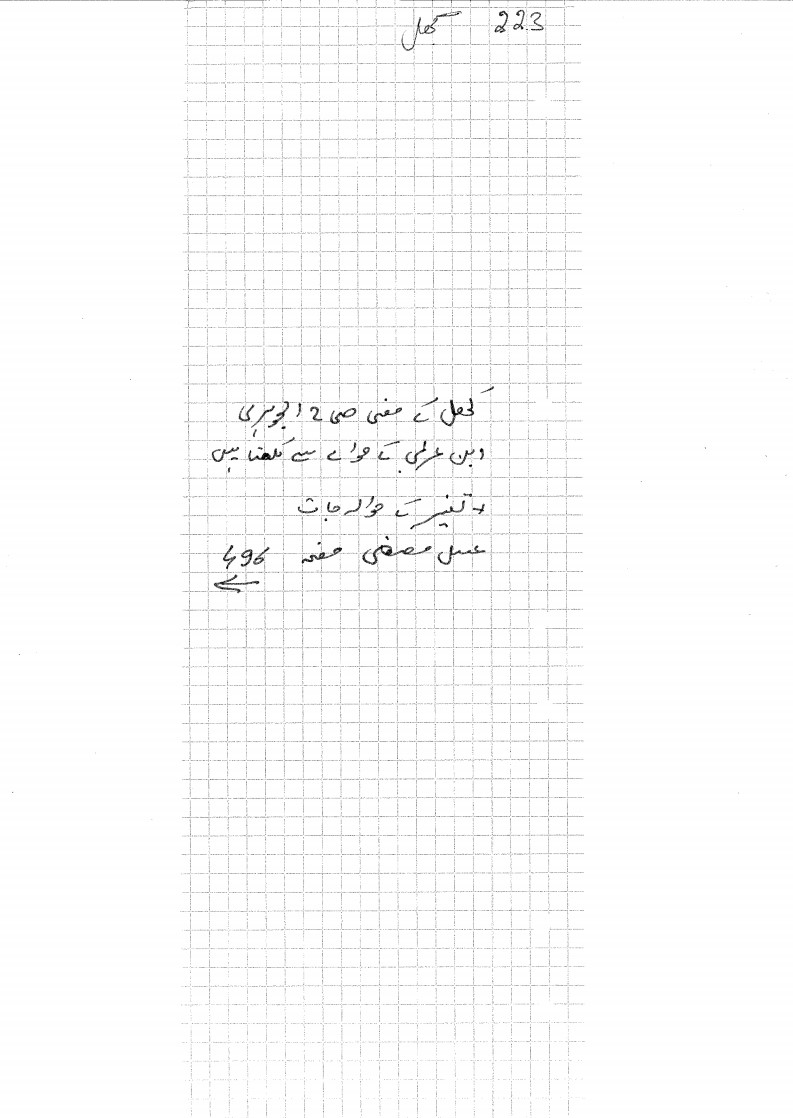 223 کہل
کہل کے معنی میں الجوہری
ابن عربی کے حوالے سے لکھتا ہیں
+ تفسیر کے حوالہ جات
عسل مصفی صفحہ 496